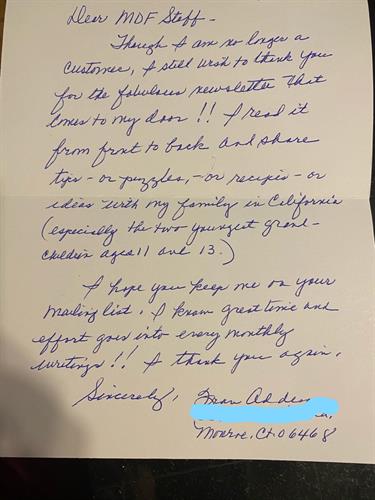 Dear MDF Staff -
Though I am no longer a
customer, I still wish to thank you
for the fabulous newsletter that
comes to my door!! I read it
from front to back and share
tips - or puzzles, - or recipes - or
ideas with my family in California
(especially the two youngest grand-
children ages 11 and 13.)
I hope you keep me on your
mailing list. I know great time and
effort goes into every monthly
writing!! I thank you again.
Sincerely,
Monroe, Ct 06468